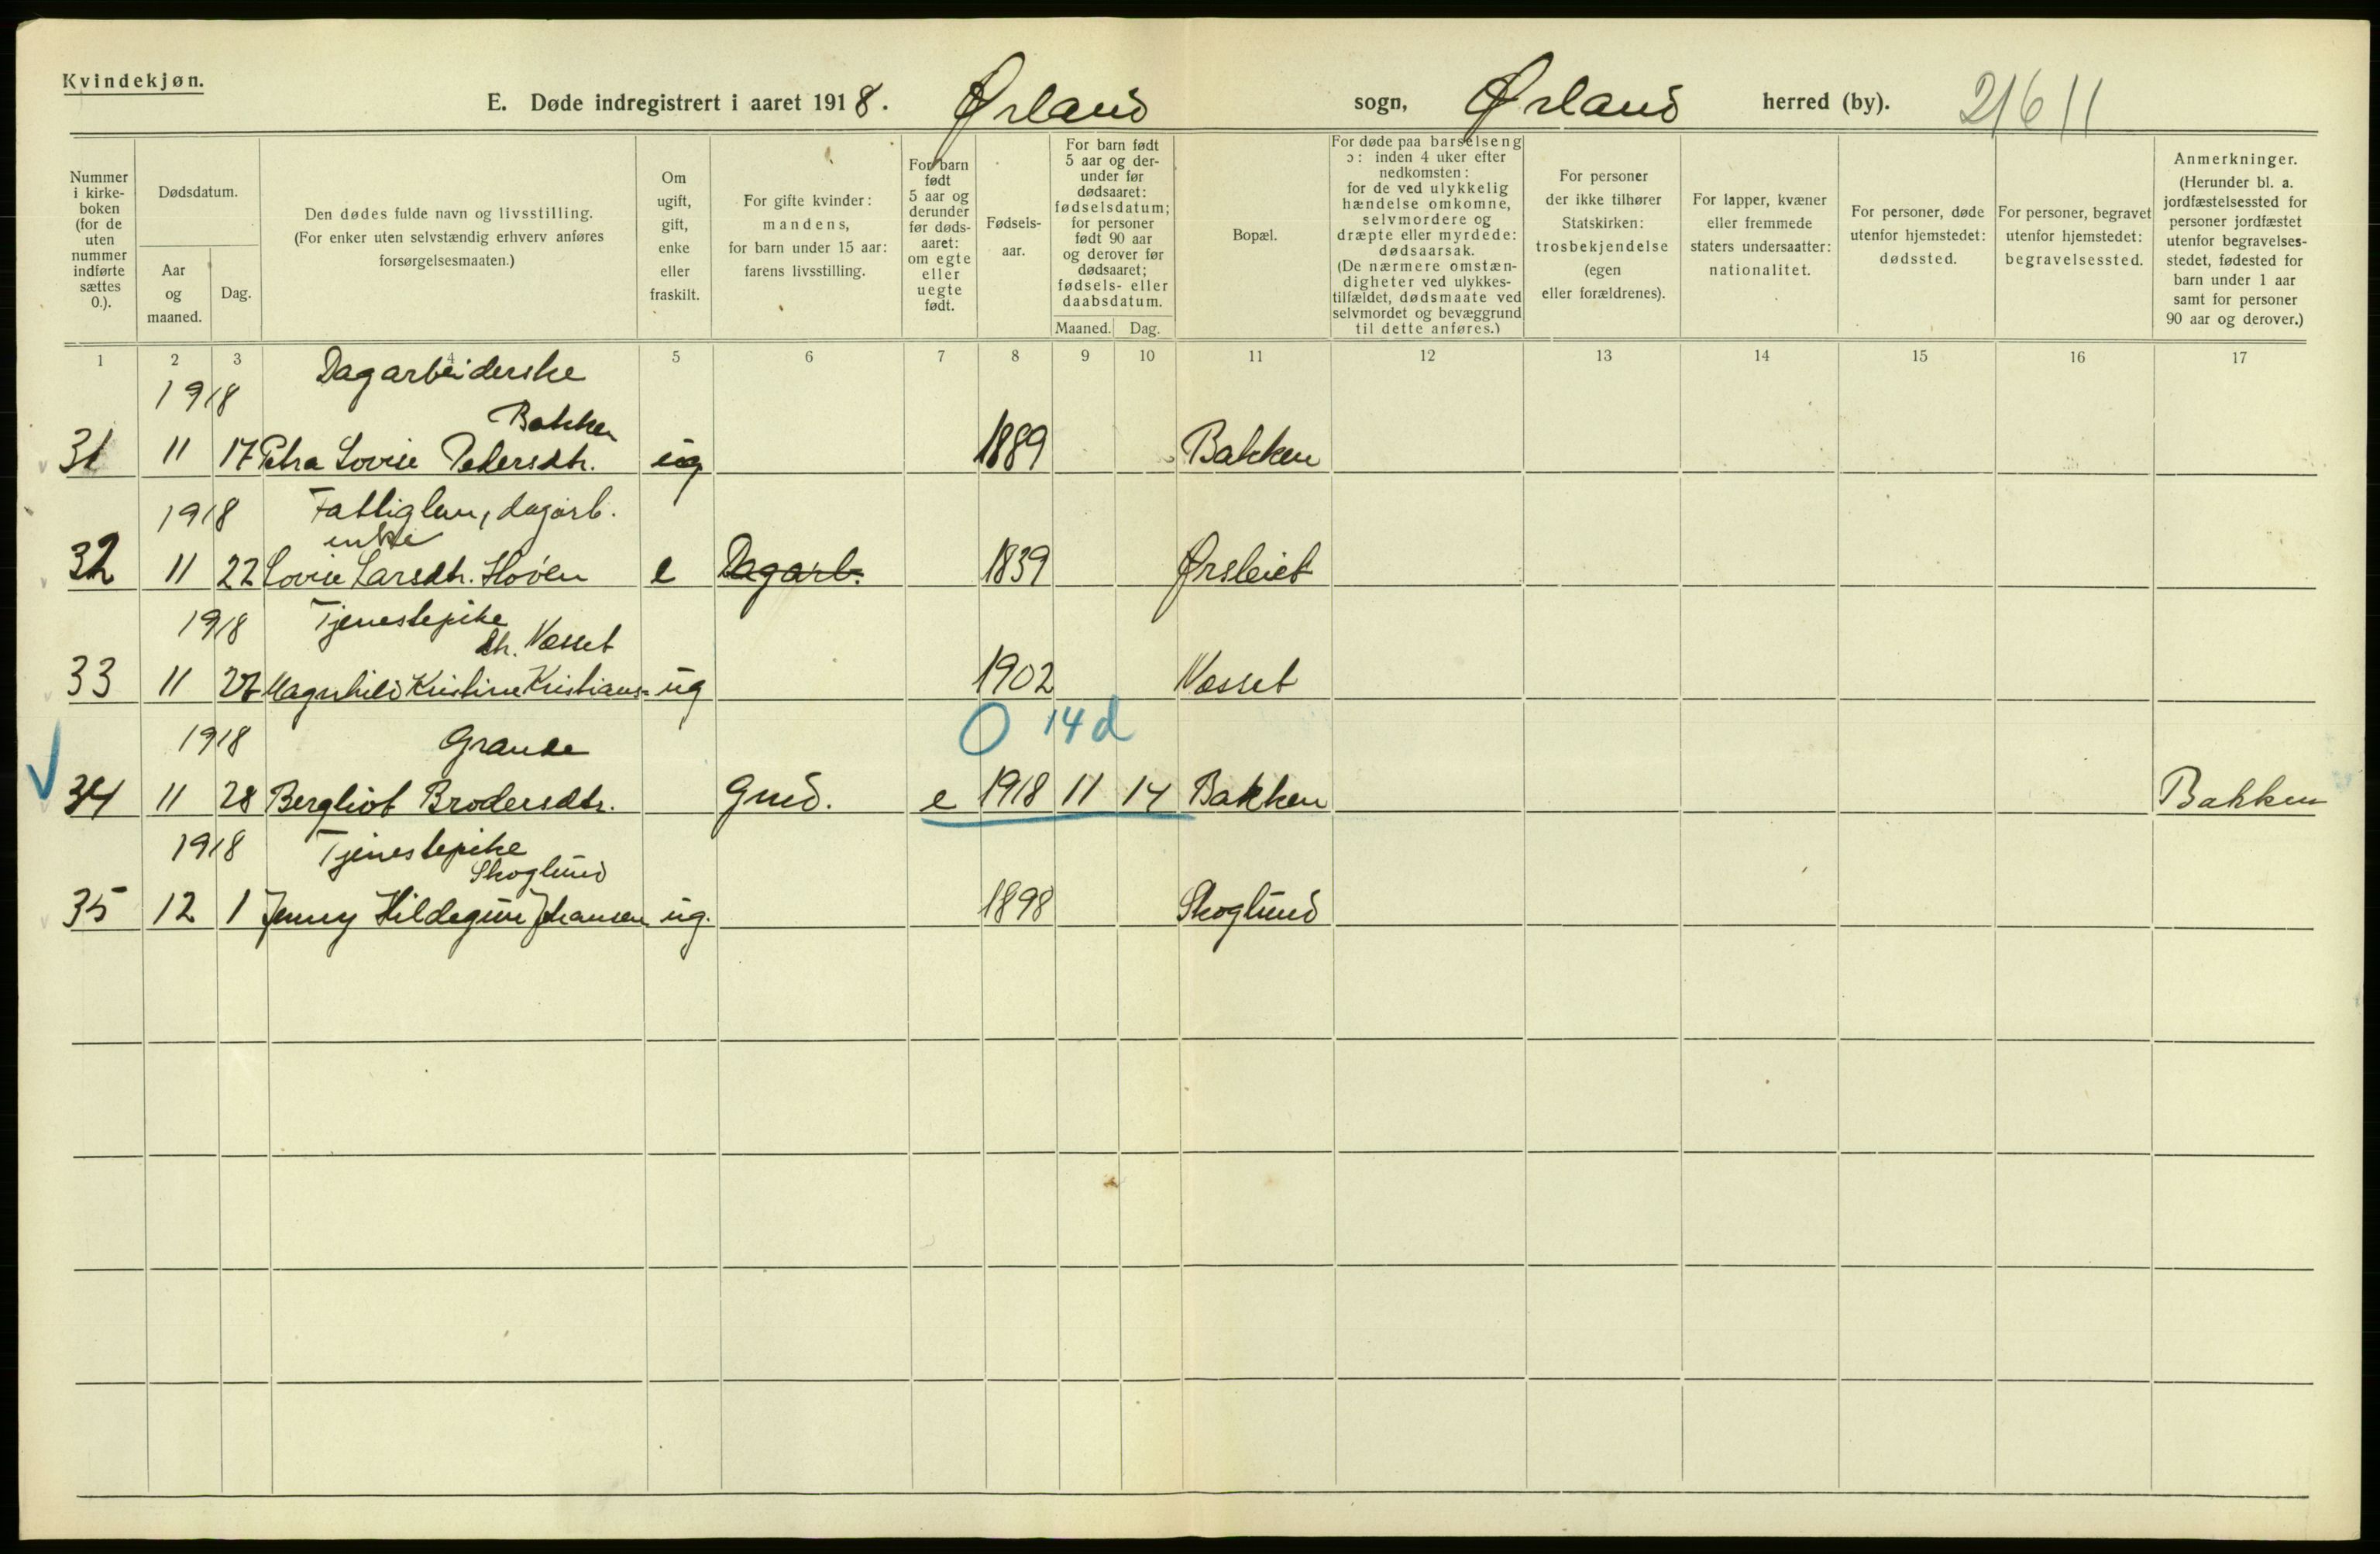 Kvindekjøn.
E. Døde indregistrert i aaret 1918. Ørland sogn, Ørland herred (by). 21611
Nummer i kirke- boken (for de uten nummer indførte sættes 0.).
Dødsdatum.
Aar og maaned.
Dag.
Den dødes fulde navn og livsstilling.
(For enker uten selvstændig erhverv anføres
forsørgelsesmaaten.)
Om ugift, gift, enke eller fraskilt.
For gifte kvinder: mandens, for barn under 15 aar: farens livsstilling.
For barn født 5 aar og derunder før døds- aaret: om egte eller uegte født.
Fødsels- aar.
For barn født 5 aar og der- under før dødsaaret: fødselsdatum; for personer født 90 aar og derover før dødsaaret; fødsels- eller daabsdatum.
Maaned. Dag.
Bopæl.
For døde paa barselseng ɔ: inden 4 uker efter nedkomsten: for de ved ulykkelig hændelse omkomne, selvmordere og dræpte eller myrdede: dødsaarsak. (De nærmere omstæn- digheter ved ulykkes- tilfældet, dødsmaate ved selvmordet og bevæggrund til dette anføres.)
For personer der ikke tilhører Statskirken: trosbekjendelse (egen eller forældrenes).
For lapper, kvæner eller fremmede staters undersaatter: nationalitet.
For personer, døde utenfor hjemstedet: dødssted.
For personer, begravet utenfor hjemstedet: begravelsessted.
Anmerkninger. (Herunder bl. a. jordfæstelsessted for personer jordfæstet utenfor begravelses- stedet, fødested for barn under 1 aar samt for personer 90 aar og derover.)
1 2 3 4 5 6 7 8 9 10 11 12 13 14 15 16 17
1918 Dagarbeiderske
Bakken
31 11 17 Petra Lovise Pedersdtr. ug 1889 Bakken
1918 Fattiglem, dagarb.
enke
32 11 22 Lovise Larsdtr. Hoven e Dagarb. 1839 Ørsleiet
1918 Tjenestepike
dtr. Næsset
33 11 27 Magnhild Kristine Kristians- ug 1902 Næsset
0 14 d
1918 Grande
34 11 28 Bergliot Brodersdtr. Gmd. e 1918 11 14 Bakken Bakken
1918 Tjenestepike
Skoglund
35 12 1 Jenny Hildegun Johansen ug. 1898 Skoglund